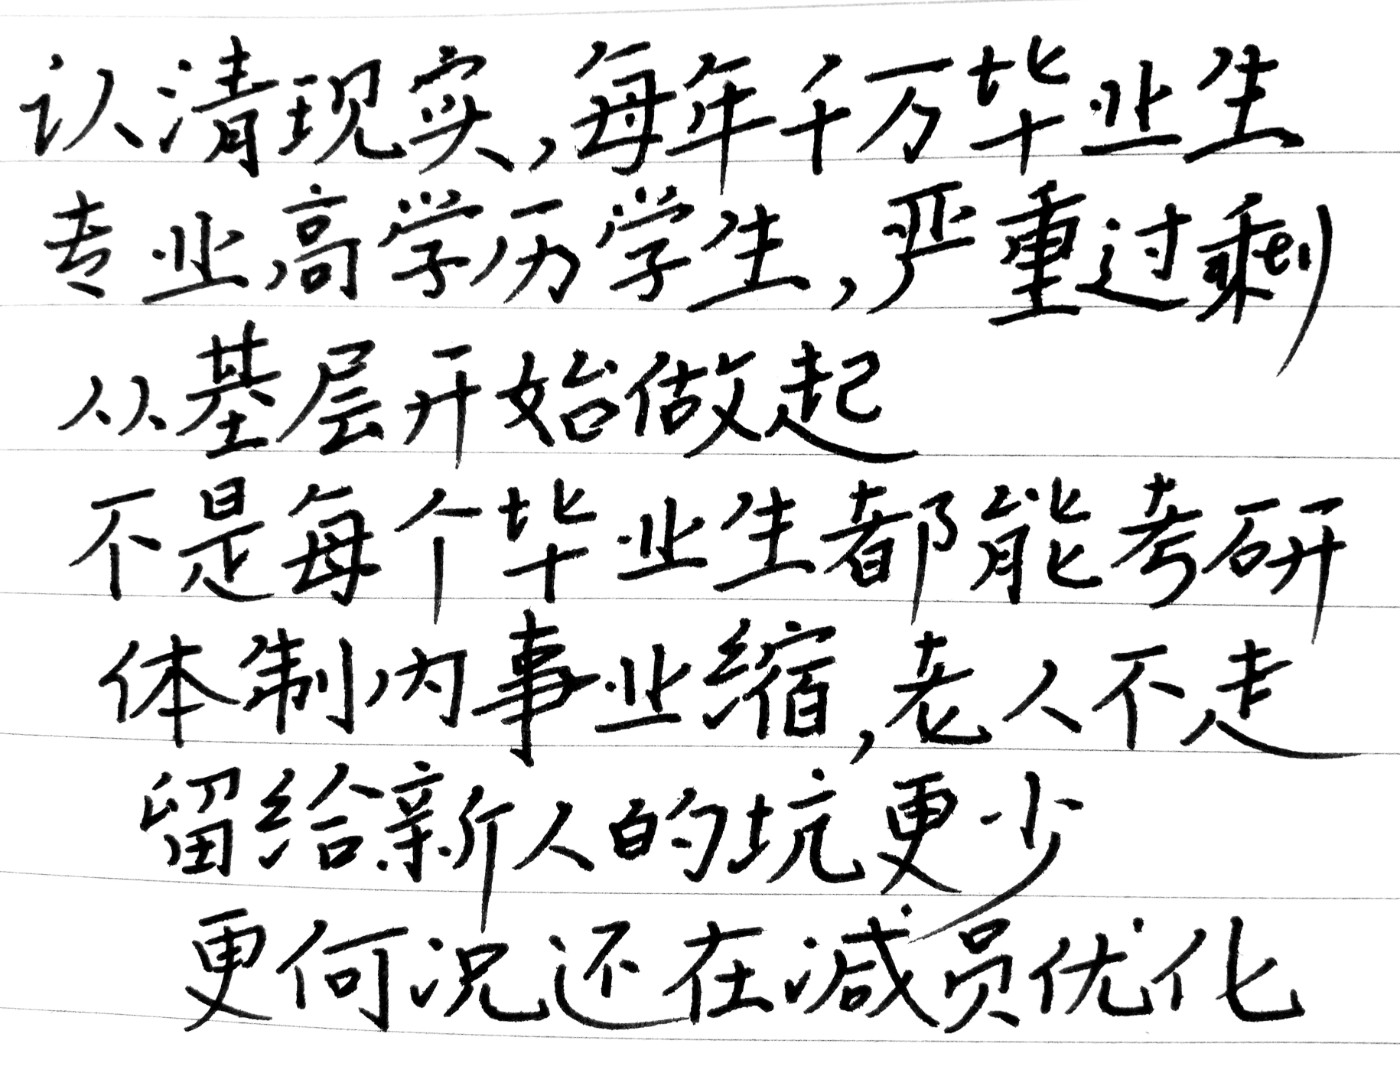 认清现实,每年千万毕业生
专业高学历学生,严重过剩
从基层开始做起
不是每个毕业生都能考研
体制内事业缩,老人不走
留给新人的坑更少
更何况还在减员优化